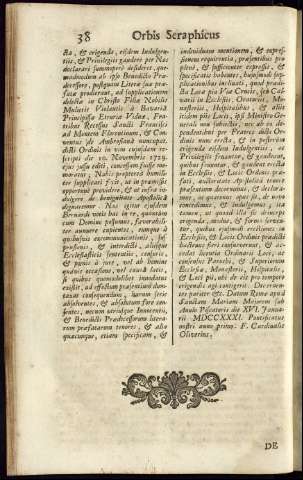 38 Orbis Seraphicus
cta, & erigenda, eisdem Indulgen-
tiis, & Privilegiis gaudere per Nos
declarari summopere desideret, que-
madmodum ab ipso Benedicto Præ-
decessore, postquam Literæ suæ præ-
fatæ prodierant, ad supplicationem
dilectæ in Christo Filiæ Nobilis
Mulieris Violantis a Bavaria
Principissæ Etruriæ Viduæ, Fra-
tribus Recessus Sancti Francisci
ad Montem Florentinum, & Con-
ventus de Ambrosiana nuncupat.
dicti Ordinis in vim cujusdam re-
scripti die 10. Novembris 1729.
ejus jussu editi, concessum fuisse me-
moratur; Nobis propterea humili-
ter supplicari fecit, ut in præmissis
opportune providere, & ut infra in-
dulgere de benignitate Apostolica
dignaremur. Nos igitur ejusdem
Bernardi votis hac in re, quantum
cum Domino possumus, favorabili-
ter annuere cupientes, eumque à
quibusvis excommunicationis, su-
spensionis, & interdicti, aliisque
Ecclesiasticis sententiis, censuris,
& pœnis à jure, vel ab homine
quavis occasione, vel causa latis,
si quibus quomodolibet innodatus
existit, ad effectum præsentium dum-
taxat consequendum, harum serie
absolventes, & absolutum fore cen-
sentes, necnon utriusque Innocentii,
& Benedicti Prædecessorum litera-
rum præfatarum tenores, & alia
quæcunque, etiam specificam, &
individuam mentionem, & expres-
sionem requirentia, præsentibus pro
plenè, & sufficienter expressis, &
specificatis habentes, hujusmodi sup-
plicationibus inclinati, quod præde-
cta Loca pia Viæ Crucis, seu Cal-
varii in Ecclesiis, Oratoriis, Mo-
nasteriis, Hospitalibus, & aliis
itidem piis Locis, ipsi Ministro Ge-
nerali non subjectis, nec ab eo de-
pendentibus per Fratres dicti Or-
dinis vero erecta, & in posterum
erigenda eisdem Indulgentiis, ac
Privilegiis fruantur, & gaudeant,
quibus fruuntur, & gaudent erecta
in Ecclesiis, & Locis Ordinis præ-
fati, auctoritate Apostolica tenore
præsentium decernimus, & declara-
mus, ac quatenus opus sit, de novo
concedimus, & indulgemus, ita
tamen, ut quoad illa sic deinceps
erigenda, omnes, & singulæ regu-
læ, quibus ejusmodi erectiones in
Ecclesiis, & Locis Ordinis prædicti
hactenus fieri consueverunt, & ac-
cedat licentia Ordinarii Loci, ac
consensus Parochi, & Superiorum
Ecclesiæ, Monasterii, Hospitalis,
& Loci pii, ubi de eis pro tempore
erigendis agi contigerit. Decernen-
tes pariter &c. Datum Romæ apud
Sanctam Mariam Majorem sub
Annulo Piscatoris die XVI. Janua-
rii MDCCXXXI. Pontificatus
nostri anno primo. F. Cardinalis
Oliverius.
DE